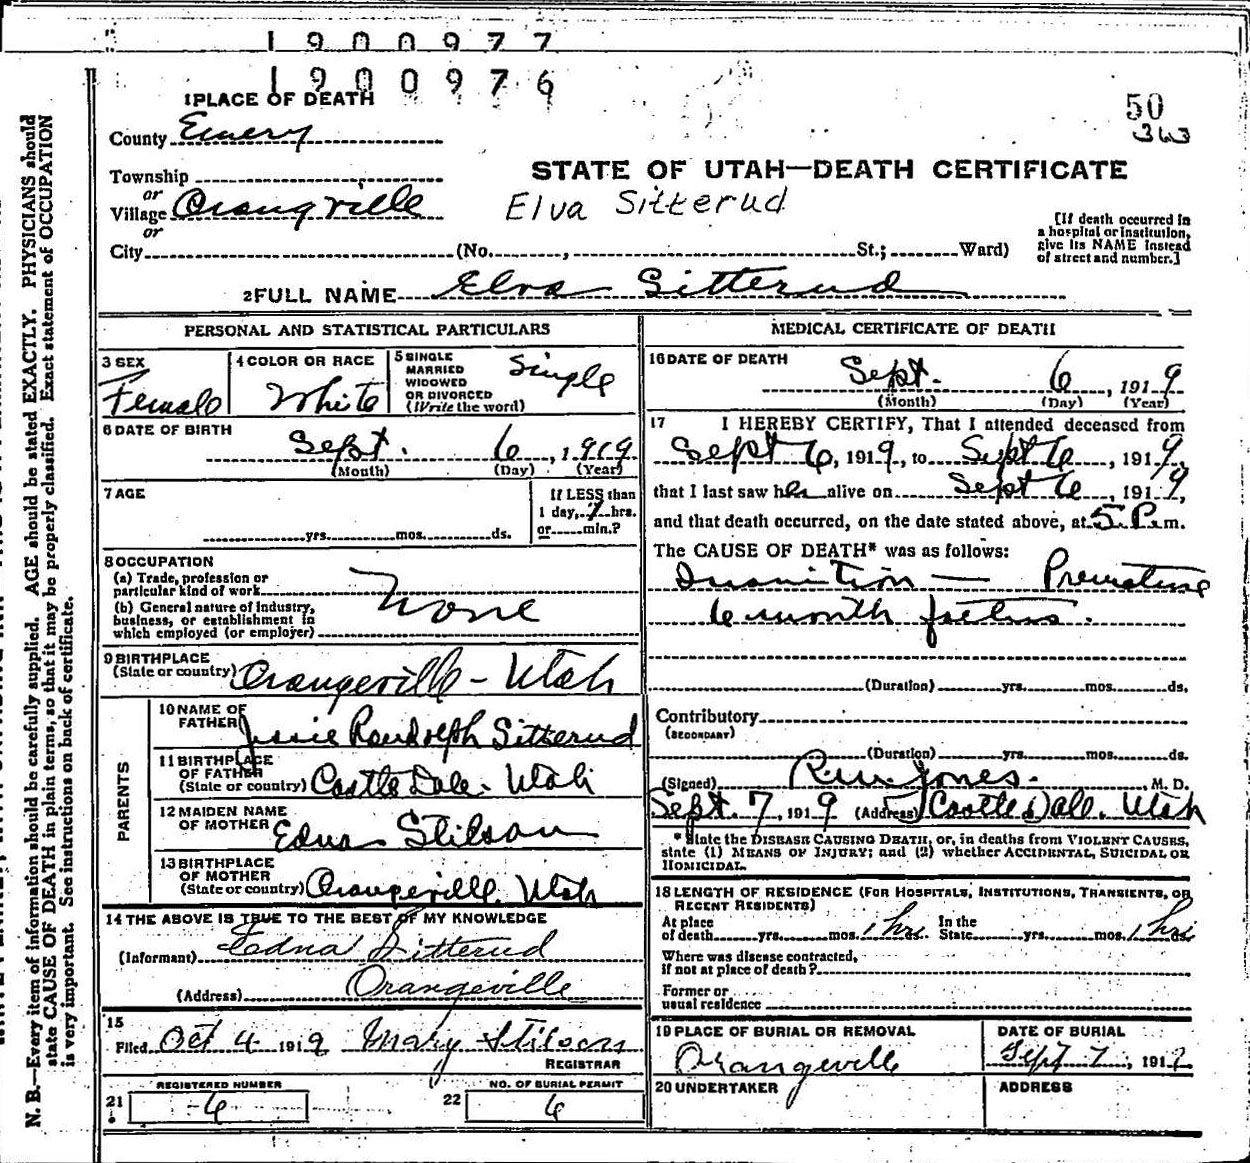 1900977
1900976
1 PLACE OF DEATH
50
363
County Emery
STATE OF UTAH—DEATH CERTIFICATE
Township
or
Village Orangville
Elva Sitterud
or
City (No. , St.; Ward)
[If death occurred in
a hospital or institution,
give its NAME instead
of street and number.]
2 FULL NAME Elva Sitterud
PERSONAL AND STATISTICAL PARTICULARS
3 SEX
Female
4 COLOR OR RACE
White
5 SINGLE
MARRIED
WIDOWED
OR DIVORCED
(Write the word)
Single
6 DATE OF BIRTH
Sept. 6, 1919
(Month) (Day) (Year)
7 AGE
yrs. mos. ds.
If LESS than
1 day, 1 hrs.
or min.?
8 OCCUPATION
(a) Trade, profession or
particular kind of work
(b) General nature of industry,
business, or establishment in
which employed (or employer)
None
9 BIRTHPLACE
(State or country) Orangeville - Utah
PARENTS
10 NAME OF
FATHER Jessie Randolph Sitterud
11 BIRTHPLACE
OF FATHER
(State or country) Castle Dale. Utah
12 MAIDEN NAME
OF MOTHER Edna Stilson
13 BIRTHPLACE
OF MOTHER
(State or country) Orangeville. Utah
14 THE ABOVE IS TRUE TO THE BEST OF MY KNOWLEDGE
(Informant) Edna Sitterud
(Address) Orangeville
15
Filed Oct 4 1919 Mary Stilson
REGISTRAR
REGISTERED NUMBER
21 6
NO. OF BURIAL PERMIT
22 6
MEDICAL CERTIFICATE OF DEATH
16 DATE OF DEATH
Sept. 6, 1919
(Month) (Day) (Year)
17 I HEREBY CERTIFY, That I attended deceased from
Sept 6, 1919, to Sept 6, 1919,
that I last saw her alive on Sept 6, 1919,
and that death occurred, on the date stated above, at 5 P. m.
The CAUSE OF DEATH* was as follows:
Inanition — Premature
6 month foetus.
(Duration) yrs. mos. ds.
Contributory
(SECONDARY)
(Duration) yrs. mos. ds.
(Signed) Jones. , M. D.
Sept. 7, 1919 (Address) Castle Dale. Utah
* State the DISEASE CAUSING DEATH, or, in deaths from VIOLENT CAUSES,
state (1) MEANS OF INJURY; and (2) whether ACCIDENTAL, SUICIDAL OR
HOMICIDAL.
18 LENGTH OF RESIDENCE (FOR HOSPITALS, INSTITUTIONS, TRANSIENTS, OR
RECENT RESIDENTS)
At place
of death yrs. mos. 1 hrs. In the
State yrs. mos. 1 hrs
Where was disease contracted,
if not at place of death?
Former or
usual residence
19 PLACE OF BURIAL OR REMOVAL
Orangeville
DATE OF BURIAL
Sept 7, 1919
20 UNDERTAKER
ADDRESS
N. B.—Every item of information should be carefully supplied. AGE should be stated EXACTLY. PHYSICIANS should
state CAUSE OF DEATH in plain terms, so that it may be properly classified. Exact statement of OCCUPATION
is very important. See instructions on back of certificate.